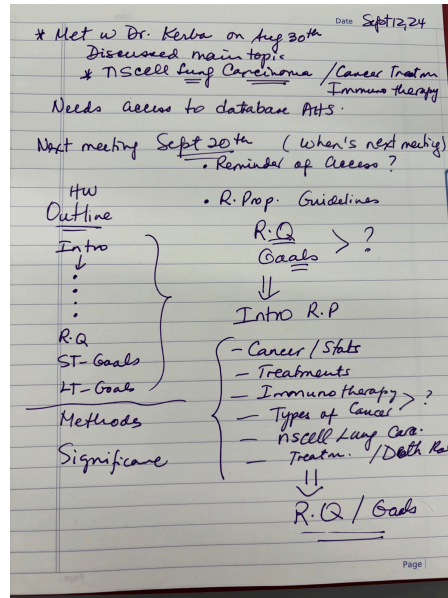 Date Sept 12, 24
* Met w Dr. Kerba on Aug 30th
Discussed main topic
* nscell Lung Carcinoma / Cancer Treatm
Immunotherapy
Needs access to database AHS.
Next meeting Sept 20th (when's next meeting)
• Reminder of access?
HW
Outline
Intro
↓
•
•
•
•
R.Q
ST-Goals
LT-Goals
Methods
Significane
• R. Prop. Guidelines
R.Q
Goals > ?
⇓
Intro R.P
- Cancer / Stats
- Treatments
- Immunotherapy
- Types of Cancer > ?
- nscell Lung Carc.
- Treatm. / Death Ra
⇓
R.Q / Goals
Page